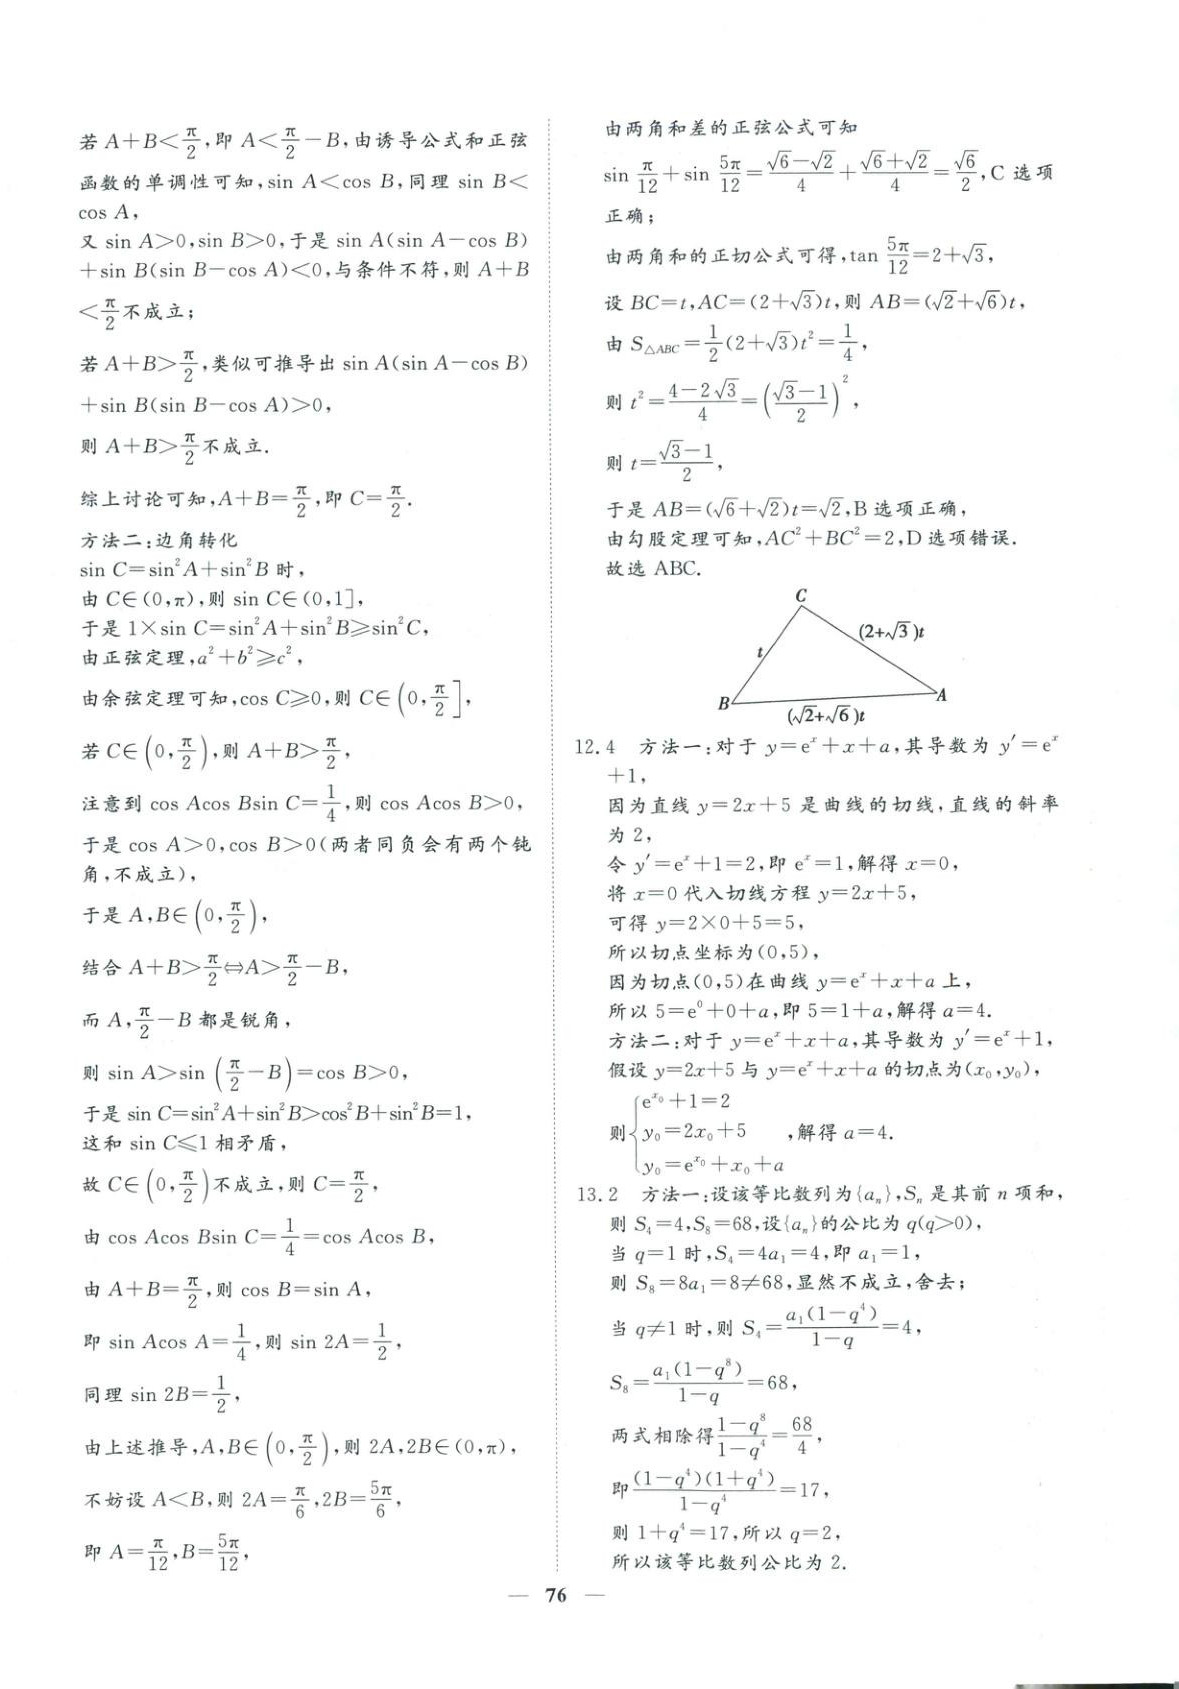 若 A+B<π/2,即 A<π/2−B,由诱导公式和正弦
函数的单调性可知,sin A<cos B,同理 sin B<
cos A,
又 sin A>0,sin B>0,于是 sin A(sin A−cos B)
+sin B(sin B−cos A)<0,与条件不符,则 A+B
<π/2不成立;
若 A+B>π/2,类似可推导出 sin A(sin A−cos B)
+sin B(sin B−cos A)>0,
则 A+B>π/2不成立.
综上讨论可知,A+B=π/2,即 C=π/2.
方法二:边角转化
sin C=sin²A+sin²B 时,
由 C∈(0,π),则 sin C∈(0,1],
于是 1×sin C=sin²A+sin²B≥sin²C,
由正弦定理,a²+b²≥c²,
由余弦定理可知,cos C≥0,则 C∈(0,π/2],
若 C∈(0,π/2),则 A+B>π/2,
注意到 cos Acos Bsin C=1/4,则 cos Acos B>0,
于是 cos A>0,cos B>0(两者同负会有两个钝
角,不成立),
于是 A,B∈(0,π/2),
结合 A+B>π/2⇔A>π/2−B,
而 A,π/2−B 都是锐角,
则 sin A>sin(π/2−B)=cos B>0,
于是 sin C=sin²A+sin²B>cos²B+sin²B=1,
这和 sin C≤1 相矛盾,
故 C∈(0,π/2)不成立,则 C=π/2,
由 cos Acos Bsin C=1/4=cos Acos B,
由 A+B=π/2,则 cos B=sin A,
即 sin Acos A=1/4,则 sin 2A=1/2,
同理 sin 2B=1/2,
由上述推导,A,B∈(0,π/2),则 2A,2B∈(0,π),
不妨设 A<B,则 2A=π/6,2B=5π/6,
即 A=π/12,B=5π/12,
由两角和差的正弦公式可知
sin π/12+sin 5π/12=(√6−√2)/4+(√6+√2)/4=√6/2,C 选项
正确;
由两角和的正切公式可得,tan 5π/12=2+√3,
设 BC=t,AC=(2+√3)t,则 AB=(√2+√6)t,
由 S△ABC=1/2(2+√3)t²=1/4,
则 t²=(4−2√3)/4=((√3−1)/2)²,
则 t=(√3−1)/2,
于是 AB=(√6+√2)t=√2,B 选项正确,
由勾股定理可知,AC²+BC²=2,D 选项错误.
故选 ABC.
C
t
(2+√3)t
B
A
(√2+√6)t
12.4 方法一:对于 y=eˣ+x+a,其导数为 y′=eˣ
+1,
因为直线 y=2x+5 是曲线的切线,直线的斜率
为 2,
令 y′=eˣ+1=2,即 eˣ=1,解得 x=0,
将 x=0 代入切线方程 y=2x+5,
可得 y=2×0+5=5,
所以切点坐标为(0,5),
因为切点(0,5)在曲线 y=eˣ+x+a 上,
所以 5=e⁰+0+a,即 5=1+a,解得 a=4.
方法二:对于 y=eˣ+x+a,其导数为 y′=eˣ+1,
假设 y=2x+5 与 y=eˣ+x+a 的切点为(x₀,y₀),
e^(x₀)+1=2
则{y₀=2x₀+5 ,解得 a=4.
y₀=e^(x₀)+x₀+a
13.2 方法一:设该等比数列为{aₙ},Sₙ 是其前 n 项和,
则 S₄=4,S₈=68,设{aₙ}的公比为 q(q>0),
当 q=1 时,S₄=4a₁=4,即 a₁=1,
则 S₈=8a₁=8≠68,显然不成立,舍去;
当 q≠1 时,则 S₄=a₁(1−q⁴)/(1−q)=4,
S₈=a₁(1−q⁸)/(1−q)=68,
两式相除得(1−q⁸)/(1−q⁴)=68/4,
即(1−q⁴)(1+q⁴)/(1−q⁴)=17,
则 1+q⁴=17,所以 q=2,
所以该等比数列公比为 2.
— 76 —